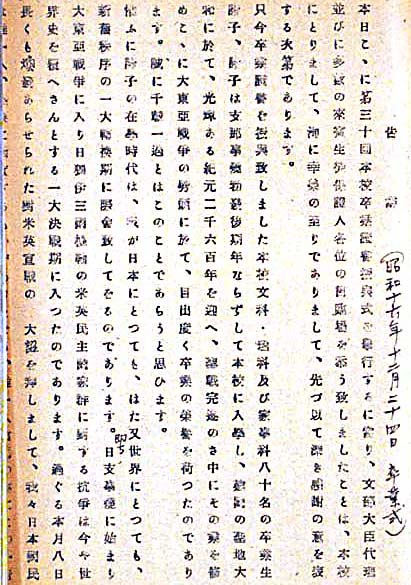 告辞
(昭和十六年十二月二十四日 卒業式)
本日こゝに第三十回本校卒業証書授与式を挙行するに当り、文部大臣代理
並びに多数の來賓生徒保護人各位の御臨場を忝う致しましたことは、本校
にとりまして、洵に幸栄の至りでありまして、先づ以て深き感謝の意を表
する次第であります。
只今卒業証書を授与致しました本校文科・理科及び家事科八十名の卒業生
諸子、諸子は支那事変勃発後期年ならずして本校に入學し、建国の聖地大
和に於て、光輝ある紀元二千六百年を迎へ、聖戦完遂のさ中にその業を修
めこゝに大東亞戰爭の劈頭に於て、目出度く卒業の栄誉を荷つたのであり
ます。誠に千載一遇とはこのことであらうと思ひます。
惟ふに諸子の在學時代は、我が日本にとつても、はた又世界にとつても、
新舊秩序の一大轉換期に際会致してをるのであります。即ち日支事変に始まり
大東亞戰爭に入り日獨伊三國樞軸の米英民主國家群に對する抗爭は今や世
界史を覆へさんとする一大決戰期に入つたのであります。過ぐる本月八日
畏くも煥発あらせられた對米英宣戰の 大詔を拝しまして、我々日本國民